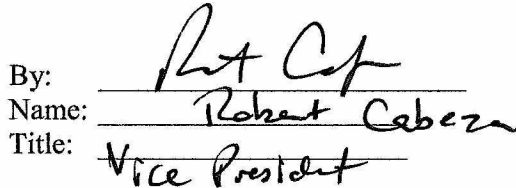 By:
Name: Robert Cabeza
Title: Vice President